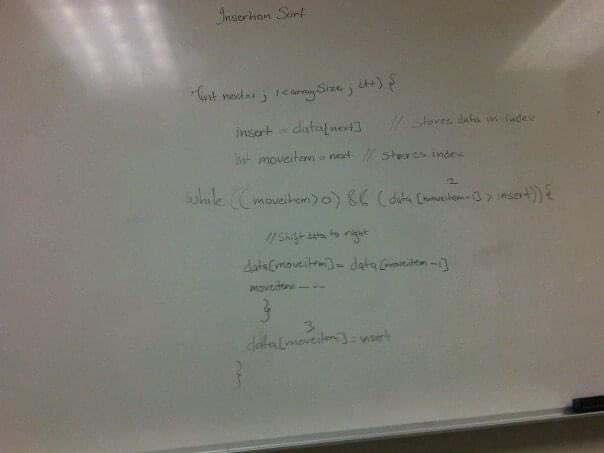 Insertion Sort
(int next=1 ; i<arraySize ; i++) {
insert = data[next] // stores data in index
int moveitem = next // stores index
2
while ((moveitem>0) && (data [moveitem-1] > insert)) {
// Shift data to right
data[moveitem] = data[moveitem-1]
moveitem --
}
3
data[moveitem] = insert
}